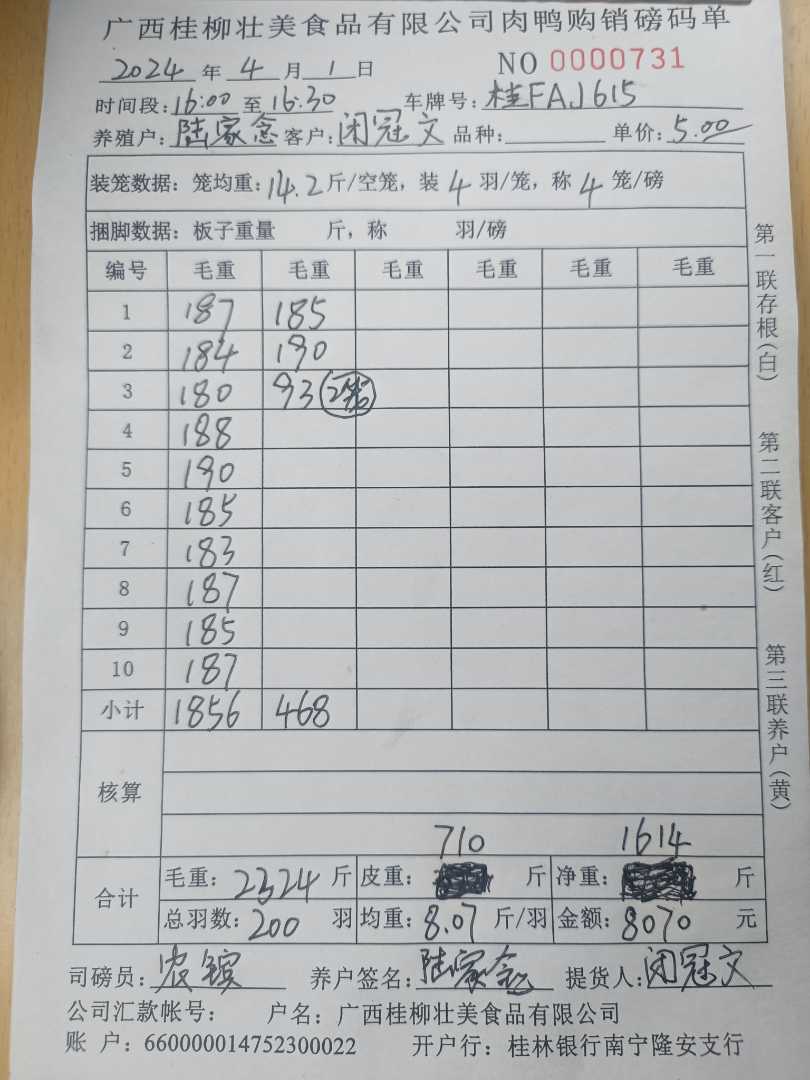 广西桂柳壮美食品有限公司肉鸭购销磅码单
2024 年 4 月 1 日 NO 0000731
时间段: 16:00 至 16:30 车牌号: 桂FAJ615
养殖户: 陆家念 客户: 闭冠文 品种: 单价: 5.00
装笼数据: 笼均重: 14.2 斤/空笼, 装 4 羽/笼, 称 4 笼/磅
捆脚数据: 板子重量 斤, 称 羽/磅
编号 毛重 毛重 毛重 毛重 毛重 毛重
1 187 185
2 184 190
3 180 93 2笼
4 188
5 190
6 185
7 183
8 187
9 185
10 187
小计 1856 468
核算
710 1614
合计 毛重: 2324 斤 皮重: 斤 净重: 斤
总羽数: 200 羽 均重: 8.07 斤/羽 金额: 8070 元
司磅员: 农镔 养户签名: 陆家念 提货人: 闭冠文
公司汇款帐号: 户名: 广西桂柳壮美食品有限公司
账 户: 660000014752300022 开户行: 桂林银行南宁隆安支行
第一联存根(白) 第二联客户(红) 第三联养户(黄)